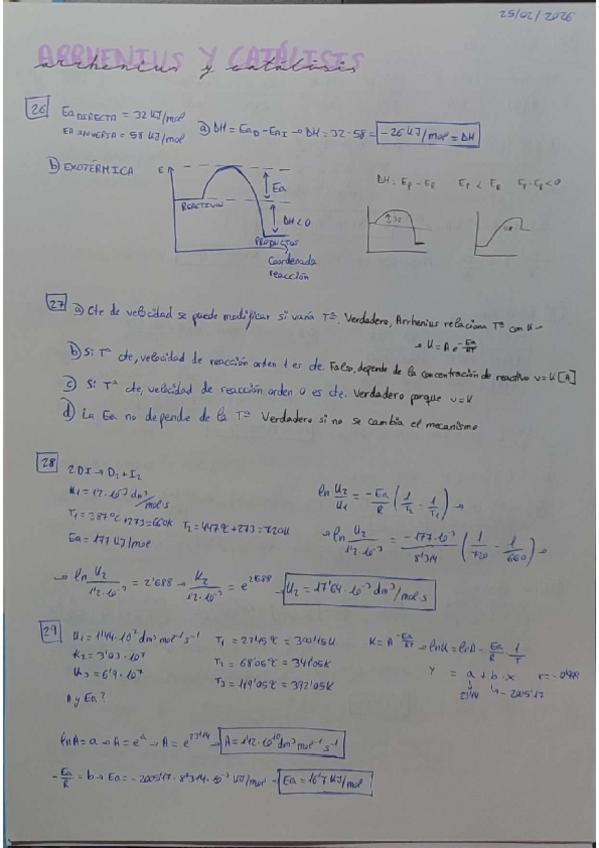 25/02/2026
ARRHENIUS Y CATÁLISIS
arrhenius y catálisis
26 Ea DIRECTA = 32 KJ/mol
Ea INVERSA = 58 KJ/mol a) ΔH = EaD - EaI → ΔH = 32 - 58 = -26 KJ/mol = ΔH
b) EXOTÉRMICA E
Ea
REACTIVOS
ΔH<0
PRODUCTOS
Coordenada
reacción
ΔH = Ep - ER Ep < ER Ep - ER < 0
27 a) Cte de velocidad se puede modificar si varía Tª. Verdadero, Arrhenius relaciona Tª con K →
→ K = A e^(-Ea/RT)
b) Si Tª cte, velocidad de reacción orden 1 es cte. Falso, depende de la concentración de reactivo v = K [A]
c) Si Tª cte, velocidad de reacción orden 0 es cte. Verdadero porque v = K
d) La Ea no depende de la Tª Verdadero si no se cambia el mecanismo
28 2DI → D2 + I2
K1 = 1'2·10^-3 dm³/mol·s
T1 = 387ºC + 273 = 660K T2 = 447ºC + 273 = 720K
Ea = 177 KJ/mol
ln K2/K1 = -Ea/R (1/T2 - 1/T1) →
→ ln K2/1'2·10^-3 = -177·10^3/8'314 (1/720 - 1/660) →
→ ln K2/1'2·10^-3 = 2'688 → K2/1'2·10^-3 = e^2'688 → K2 = 17'64·10^-3 dm³/mol·s
29 K1 = 1'44·10^7 dm³ mol^-1 s^-1 T1 = 27'15ºC = 300'15K
K2 = 3'03·10^7 T2 = 68'05ºC = 341'05K
K3 = 6'9·10^7 T3 = 119'05ºC = 392'05K
A y Ea?
K = A^(-Ea/RT) → lnK = lnA - Ea/R · 1/T
Y = a + b · x
23'14 -2005'17
lnA = a → A = e^a → A = e^23'14 → A = 1'12·10^10 dm³ mol^-1 s^-1
-Ea/R = b → Ea = -2005'17 · 8'314·10^-3 KJ/mol → Ea = 16'7 KJ/mol